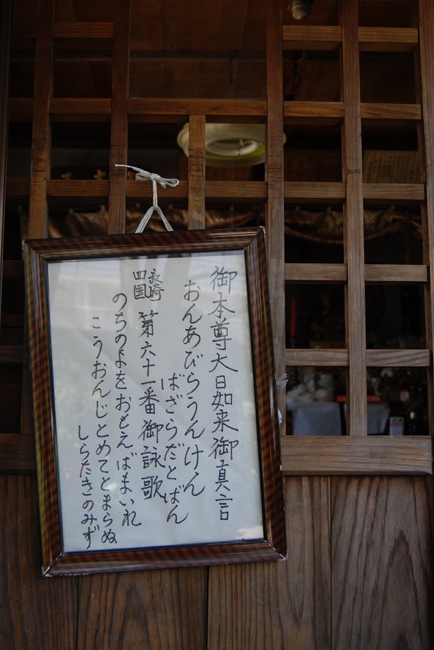 御本尊大日如来御真言
おんあびらうんけん
ばざらだとばん
長崎四国第六十一番御詠歌
のちのよをおもえばまいれ
こうおんじとめてとまらぬ
しらたきのみず